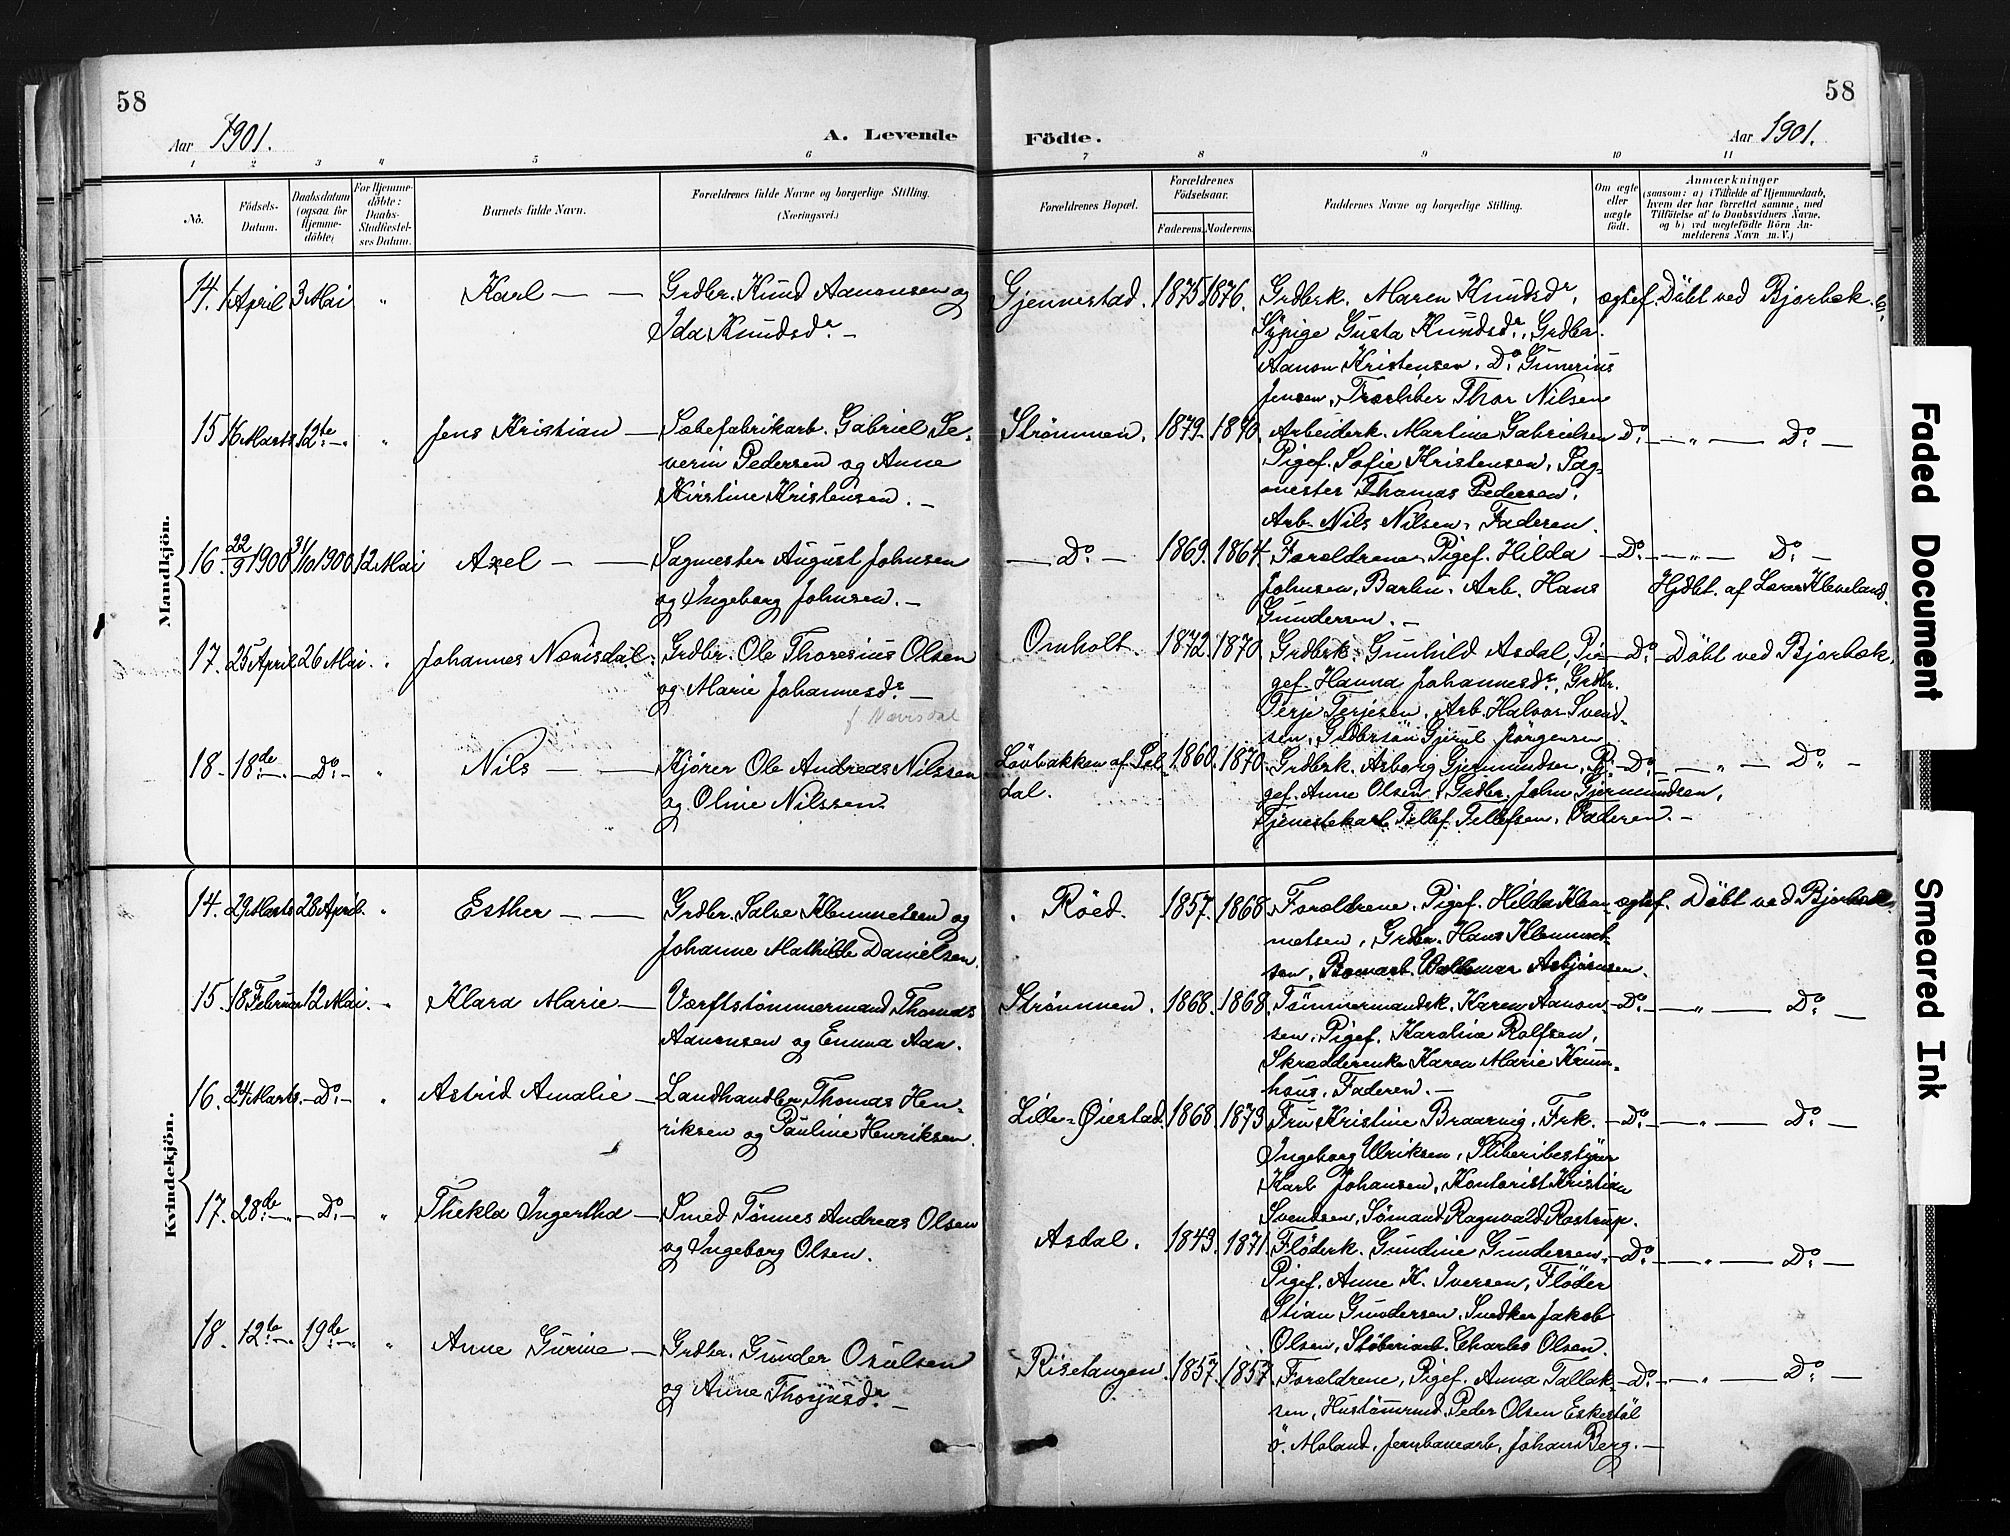 58
58
Aar 1901.
A. Levende
Födte.
Aar 1901.
1 2 3 4 5 6 7 8 9 10 11
No.
Födsels-
Datum.
Daabsdatum
(ogsaa for
Hjemme-
döbte)
For Hjemme-
döbte:
Daabs-
Stadfæstel-
ses Datum.
Barnets fulde Navn.
Forældrenes fulde Navne og borgerlige Stilling.
(Næringsvei.)
Forældrenes Bopæl.
Forældrenes
Födselsaar.
Faderens. Moderens.
Faddernes Navne og borgerlige Stilling.
Om ægte
eller
uægte
födt.
Anmærkninger
(saasom: a) i Tilfælde af Hjemmedaab,
hvem der har forrettet samme, med
Tilföielse af to Daabsvidners Navne.
og b) ved uægtefödte Börn An-
melderens Navn m. V.)
Mandkjön.
14. 1 April 3 Mai " Karl — —
Grdbr. Knud Aanonsen og
Ida Knudsdr. —
Gjennestad. 1875. 1876.
Grdbrk. Maren Knudsdr,
Sypige Gusta Knudsdr, Grdbr.
Aanon Kristensen. Do Gunerius
Jensen, Thor Nilsen
ægtef. Döbt ved Bjorbæk
15 16 Marts 12te — " Jens Kristian —
Sæbefabrikarb. Gabriel Se-
verin Pedersen og Anne
Kirstine Kristensen. —
Strømmen. 1879. 1870.
Arbeiderk. Martine Gabrielsen
Pigef. Sofie Kristensen, Sag-
mester Thomas Pedersen,
Arb. Nils Nilsen, Faderen.
Do — " — Do —
16. 22/9 1900 31/10 1900 12 Mai Axel — —
Sagmester August Johnsen
og Ingeborg Johnsen. —
— Do — 1869. 1864.
Forældrene, Pigef. Hilda
Johnsen, Arb. Hans
Gundersen. —
Do — " — Do —
Hjdbt. af Lærer Kleveland.
17. 25 April 26 Mai " Johannes Nævisdal.
Grdbr. Ole Thoresius Olsen
og Marie Johannesdr. —
f Nævisdal
Omholt. 1872. 1870.
Grdbrk. Gunhild Asdal, Pi-
gef. Hanna Johannesdr, Grdbr.
Terje Terjesen, Arb. Halvor Svend-
sen, Grdbrsön Gjerul Jörgensen
Do — Döbt ved Bjorbæk.
18 — 18de — Do — " Nils — —
Kjörer Ole Andreas Nilssen
og Oline Nilssen.
Lövbakken af Sel-
dal.
1860. 1870.
Grdbrk. Asborg Gjermundsen, Pi-
gef. Anne Olsen, Grdbr. John Gjermundsen,
Tjenestekarl Tellef Tellefsen, Faderen. —
Do — " — Do —
Kvindekjön.
14. 29 Marts 28 April " Esther — —
Grdbr. Salve Klemmetsen og
Johanne Mathilde Danielsen.
Röed. 1857. 1868.
Forældrene, Pigef. Hilda Klem-
metsen, Grdbr. Hans Klemmet-
sen, Bomarb. Waldemar Asbjörnsen.
ægtef. Döbt ved Bjorbæk.
15. 18 Februar 12 Mai. " Klara Marie —
Værftstömmermand Thomas
Aanonsen og Emma Aan.
Strømmen. 1868. 1868.
Tömmermandsk. Karen Aanon-
sen, Pigef. Karoline Rolfsen,
Skrædderenke Karen Marie Krum-
hous, Faderen. —
Do — " — Do —
16. 24 Marts. — Do — " Astrid Amalie —
Landhandler Thomas Hen-
riksen og Pauline Henriksen.
Lille-Øiestad. 1868. 1873.
Fru Kristine Braarvig, Frk.
Ingeborg Ulriksen, Sliberibestyrer
Karl Johansen, Kontorist Kristian
Svendsen, Sömand Ragnvald Rostrup.
Do — " — Do —
17. 28de — Do — " Thekla Ingertha —
Smed Tönnes Andreas Olsen
og Ingeborg Olsen.
Asdal. 1843. 1871.
Flöderk. Gundine Gundersen,
Pigef. Anne K. Iversen, Flöder
Stian Gundersen, Snedker Jakob
Olsen, Stöberiarb. Charles Olsen.
Do — " — Do —
18. 12te — 19de — " Anne Gurine —
Grdbr. Gunder Osulsen
og Anne Thorjusdr. —
Risetangen. 1857. 1857.
Forældrene, Pigef. Anna Tallak-
sen, Hustömrmd. Peder Olsen Eskestöl
ö. Moland, Jernbanearb. Johan Berg. —
Do — " — Do —
Faded Document
Smeared Ink